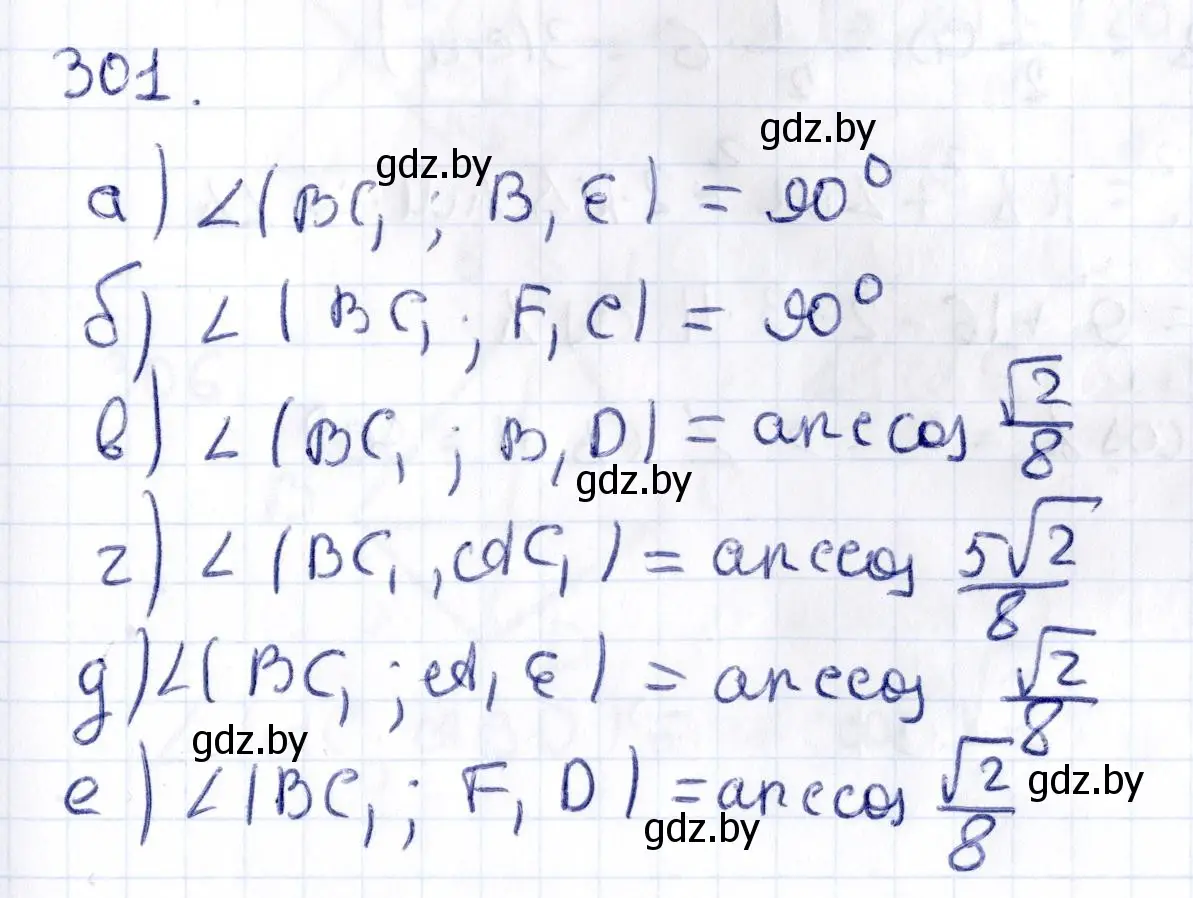 301.
gdz.by
gdz.by
а) ∠(BC₁ ; B₁E) = 90°
б) ∠(BC₁ ; F₁C) = 90°
в) ∠(BC₁ ; B₁D) = arccos √2/8
gdz.by
г) ∠(BC₁ , AC₁) = arccos 5√2/8
д) ∠(BC₁ ; A₁E) = arccos √2/8
gdz.by
е) ∠(BC₁ ; F₁D) = arccos √2/8
gdz.by
gdz.by